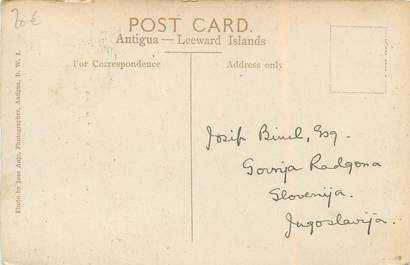 20€
POST CARD.
Antigua — Leeward Islands
For Correspondence
Address only
Josip Bincl, Esq.
Gornja Radgona
Slovenija.
Jugoslavija.
Photo by Jose Anjo, Photographer, Antigua, B. W. I.